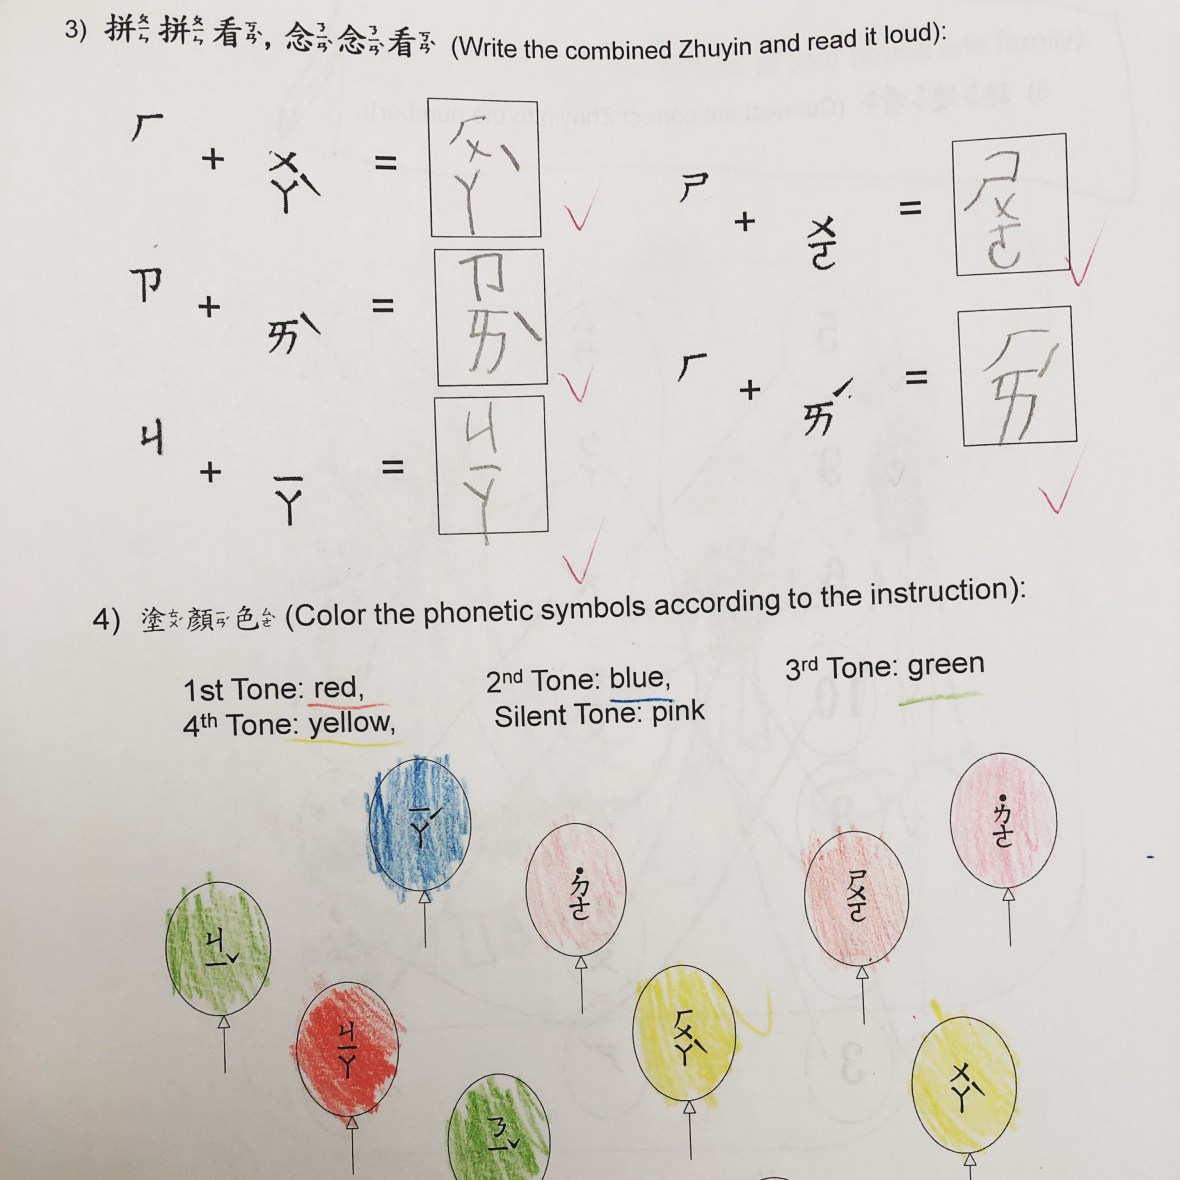 3) 拼ㄆㄧㄣ 拼ㄆㄧㄣ 看ㄎㄢˋ, 念ㄋㄧㄢˋ 念ㄋㄧㄢˋ 看ㄎㄢˋ (Write the combined Zhuyin and read it loud):
ㄏ + ㄨㄚˋ = ㄏㄨㄚˋ
ㄗ + ㄞˋ = ㄗㄞˋ
ㄐ + ㄧㄚ = ㄐㄧㄚ
ㄕ + ㄨㄛ = ㄕㄨㄛ
ㄏ + ㄞˊ = ㄏㄞˊ
4) 塗ㄊㄨˊ 顏ㄧㄢˊ 色ㄙㄜˋ (Color the phonetic symbols according to the instruction):
1st Tone: red, 2nd Tone: blue, 3rd Tone: green
4th Tone: yellow, Silent Tone: pink
ㄧㄚˊ
˙ㄉㄜ
ㄕㄨㄛ
˙ㄉㄜ
ㄐㄧˇ
ㄐㄧㄚ
ㄏㄨㄚˋ
ㄨㄚˋ
ㄋㄧˇ